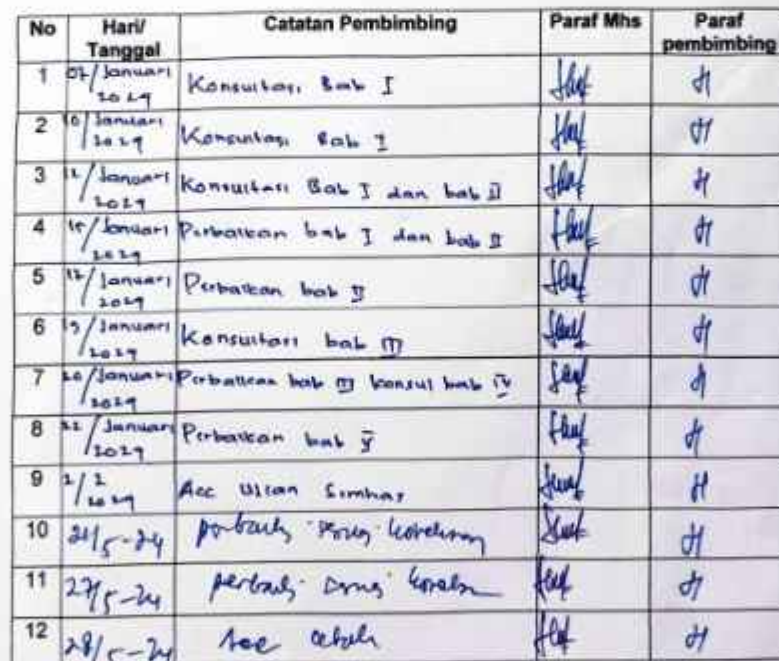 No Hari/ Tanggal Catatan Pembimbing Paraf Mhs Paraf pembimbing
1 07/Januari 2024 Konsultasi Bab I
2 10/Januari 2024 Konsultasi Bab I
3 12/Januari 2024 Konsultasi Bab I dan bab II
4 15/Januari 2024 Perbaikan bab I dan bab II
5 17/Januari 2024 Perbaikan bab II
6 19/Januari 2024 Konsultasi bab III
7 20/Januari 2024 Perbaikan bab III konsul bab IV
8 22/Januari 2024 Perbaikan bab V
9 2/2 2024 Acc Ujian Simhas
10 /5-24
11 27/5-24
12 28/5-24 Acc